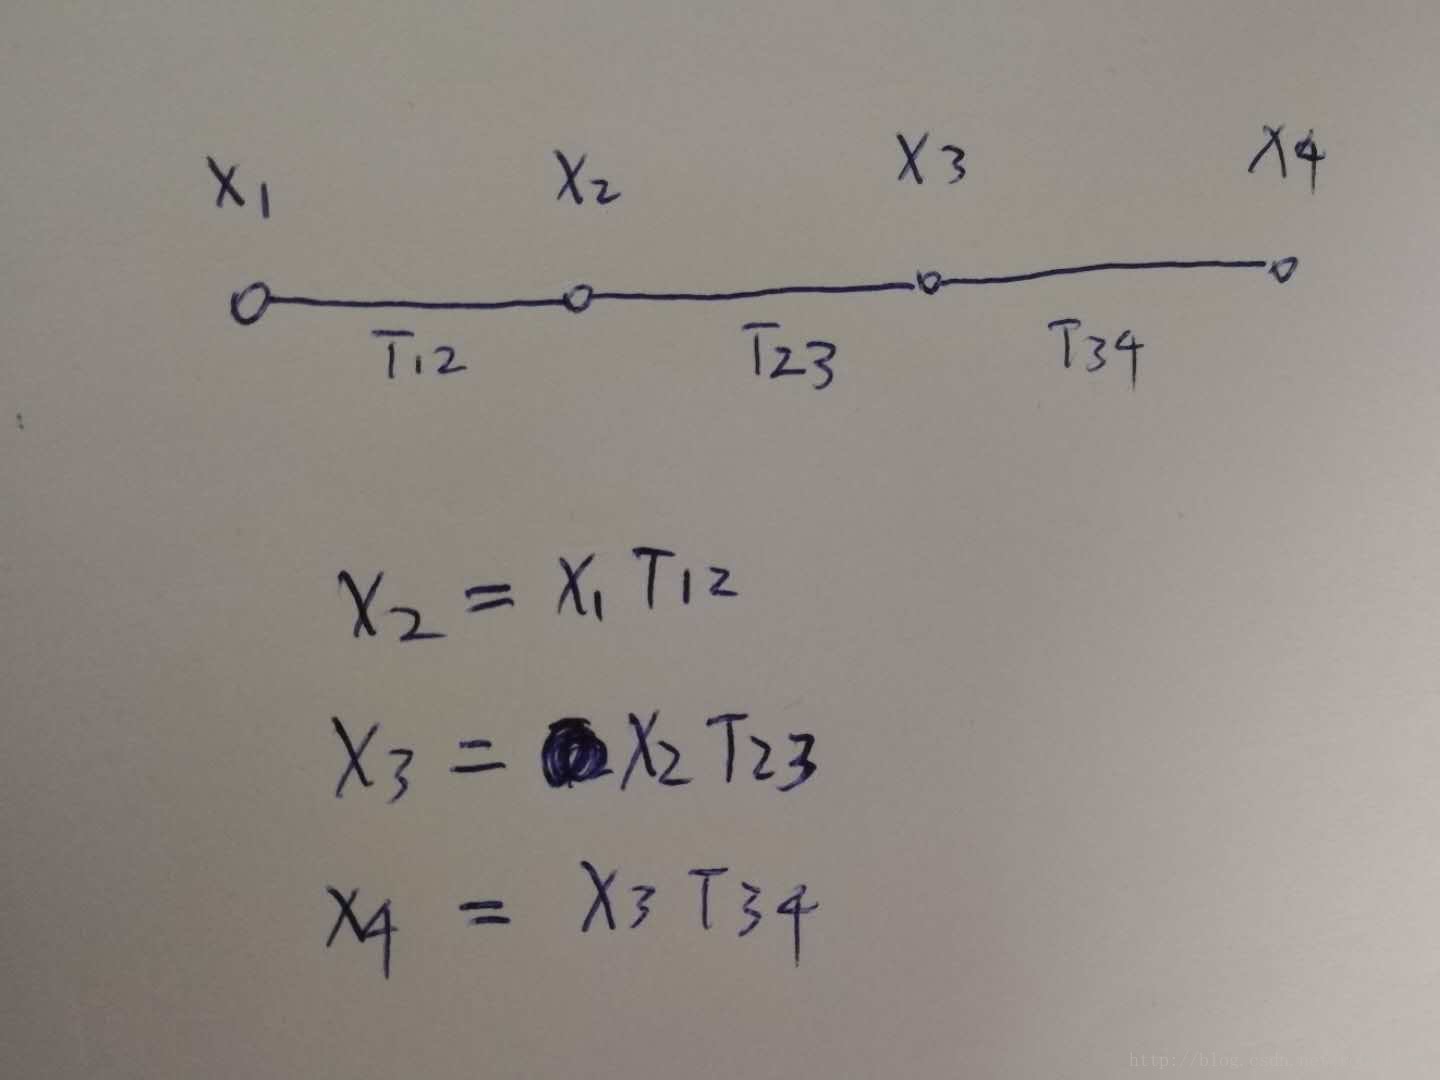 X1 X2 X3 X4
T12 T23 T34
X2 = X1 T12
X3 = X2 T23
X4 = X3 T34
http://blog.csdn.net